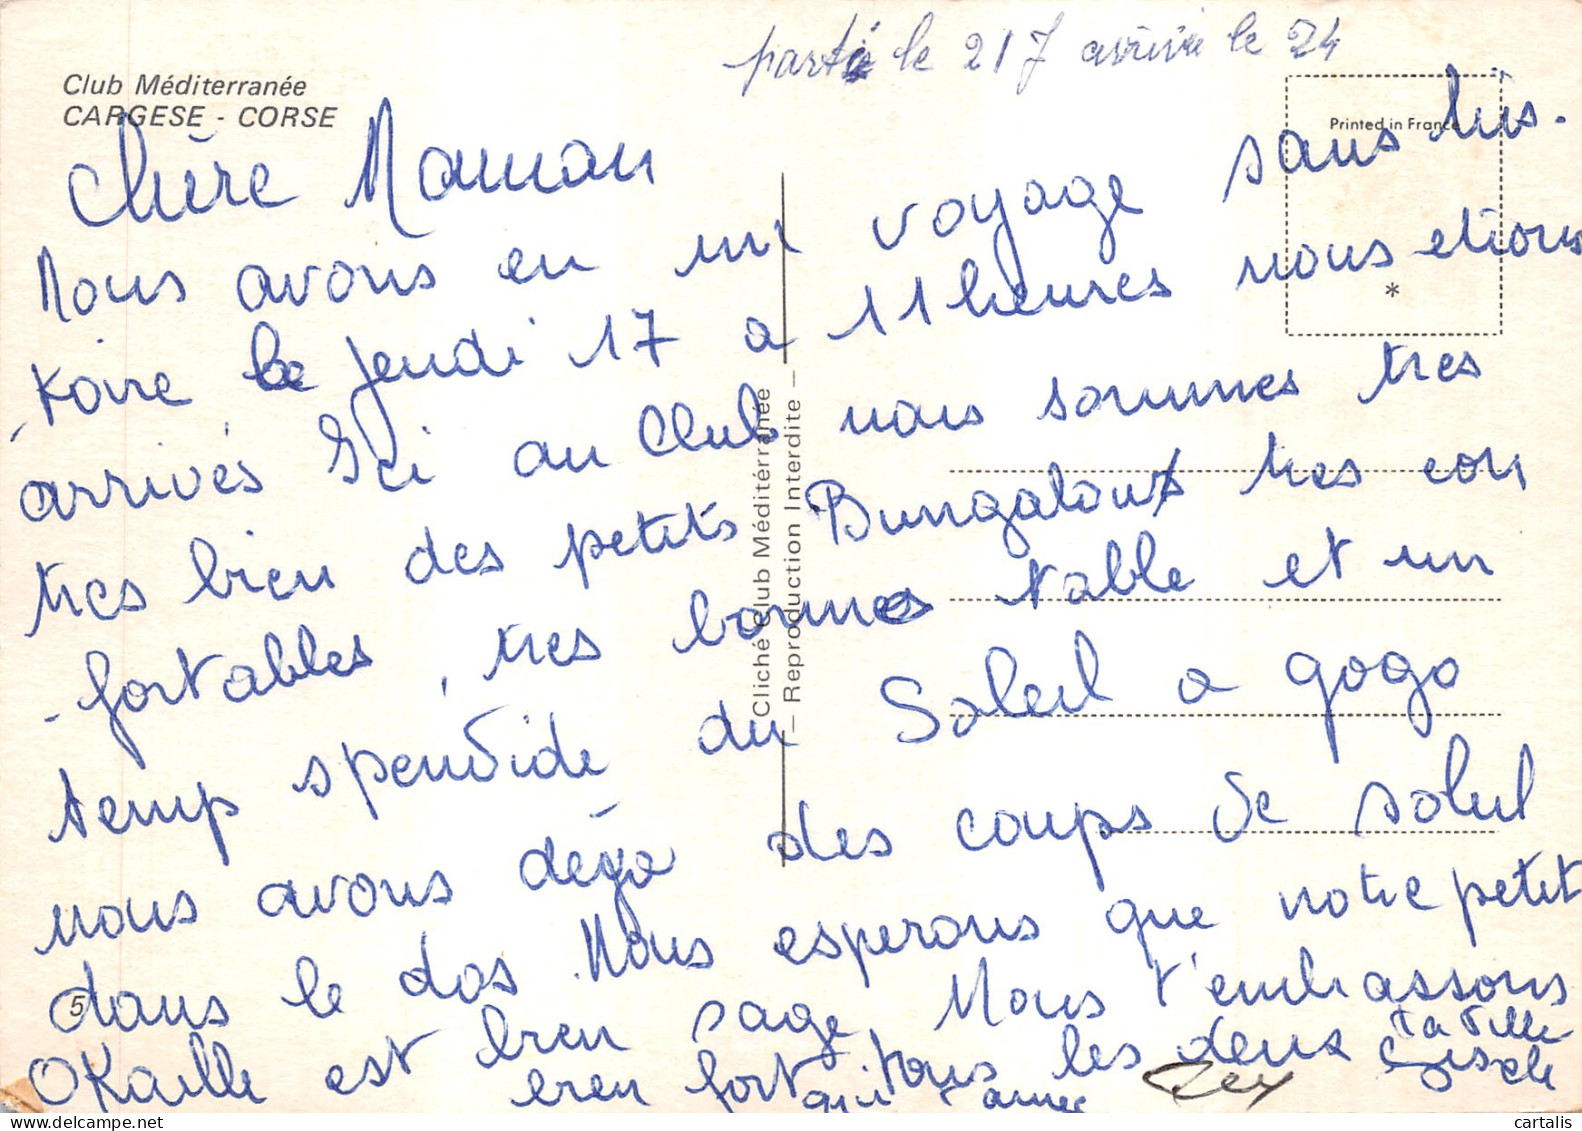 partie le 21 7 arrivée le 24
Club Méditerranée
CARGESE - CORSE
Printed in France
*
Chère Maman
Nous avons eu un voyage sans his.
-toire le jeudi 17 a 11 heures nous etions
arrivés Ici au Club nous sommes tres
tres bien des petits Bungaloux tres con
-fortables, tres bonnes table et un
temp spendide du Soleil a gogo
nous avons déga des coups de soleil
dans le dos. Nous esperons que notre petit
OKaille est bien sage, Nous t'embrassons
bien fort tous les deux ta fille
qui t'aime Gisele
Cliché Club Méditérranée
— Reproduction Interdite —
5
cartalis